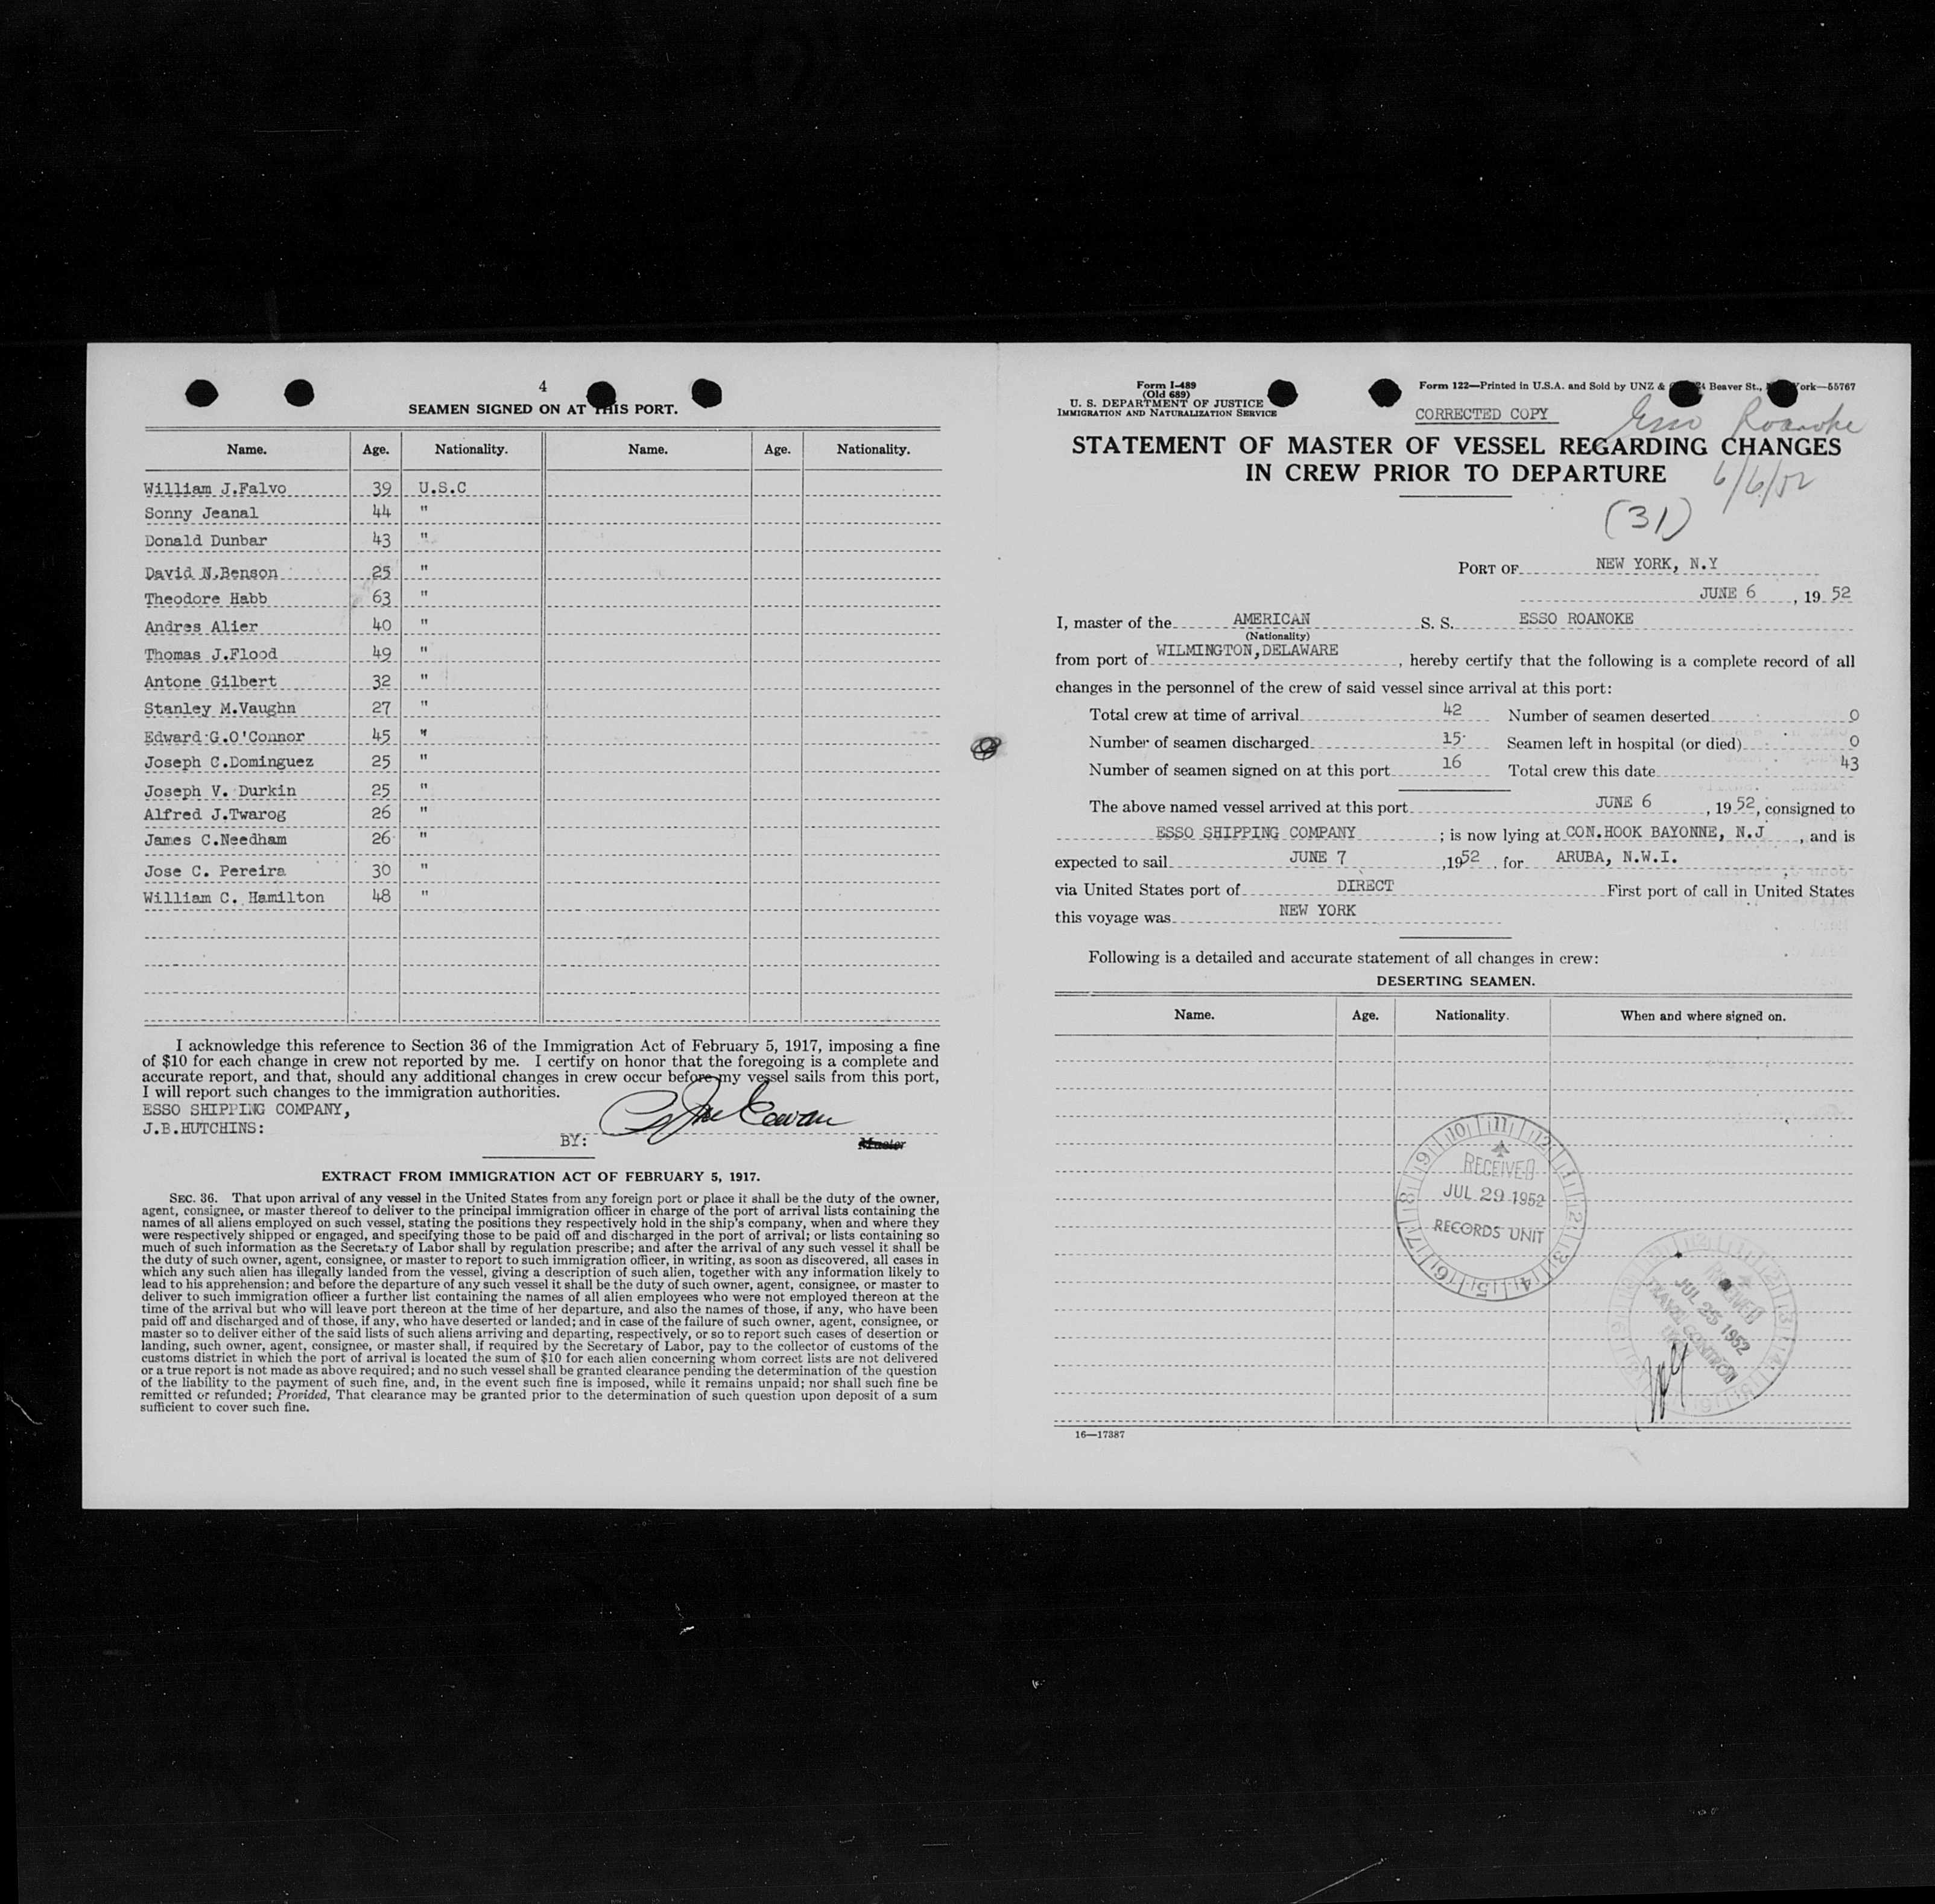 4
SEAMEN SIGNED ON AT THIS PORT.
Name. Age. Nationality. Name. Age. Nationality.
William J.Falvo 39 U.S.C
Sonny Jeanal 44 "
Donald Dunbar 43 "
David N.Benson 25 "
Theodore Habb 63 "
Andres Alier 40 "
Thomas J.Flood 49 "
Antone Gilbert 32 "
Stanley M.Vaughn 27 "
Edward G.O'Connor 45 "
Joseph C.Dominguez 25 "
Joseph V. Durkin 25 "
Alfred J.Twarog 26 "
James C.Needham 26 "
Jose C. Pereira 30 "
William C. Hamilton 48 "
I acknowledge this reference to Section 36 of the Immigration Act of February 5, 1917, imposing a fine
of $10 for each change in crew not reported by me. I certify on honor that the foregoing is a complete and
accurate report, and that, should any additional changes in crew occur before my vessel sails from this port,
I will report such changes to the immigration authorities.
ESSO SHIPPING COMPANY,
J.B.HUTCHINS:
BY:
Master
EXTRACT FROM IMMIGRATION ACT OF FEBRUARY 5, 1917.
SEC. 36. That upon arrival of any vessel in the United States from any foreign port or place it shall be the duty of the owner,
agent, consignee, or master thereof to deliver to the principal immigration officer in charge of the port of arrival lists containing the
names of all aliens employed on such vessel, stating the positions they respectively hold in the ship's company, when and where they
were respectively shipped or engaged, and specifying those to be paid off and discharged in the port of arrival; or lists containing so
much of such information as the Secretary of Labor shall by regulation prescribe; and after the arrival of any such vessel it shall be
the duty of such owner, agent, consignee, or master to report to such immigration officer, in writing, as soon as discovered, all cases in
which any such alien has illegally landed from the vessel, giving a description of such alien, together with any information likely to
lead to his apprehension; and before the departure of any such vessel it shall be the duty of such owner, agent, consignee, or master to
deliver to such immigration officer a further list containing the names of all alien employees who were not employed thereon at the
time of the arrival but who will leave port thereon at the time of her departure, and also the names of those, if any, who have been
paid off and discharged and of those, if any, who have deserted or landed; and in case of the failure of such owner, agent, consignee, or
master so to deliver either of the said lists of such aliens arriving and departing, respectively, or so to report such cases of desertion or
landing, such owner, agent, consignee, or master shall, if required by the Secretary of Labor, pay to the collector of customs of the
customs district in which the port of arrival is located the sum of $10 for each alien concerning whom correct lists are not delivered
or a true report is not made as above required; and no such vessel shall be granted clearance pending the determination of the question
of the liability to the payment of such fine, and, in the event such fine is imposed, while it remains unpaid; nor shall such fine be
remitted or refunded; Provided, That clearance may be granted prior to the determination of such question upon deposit of a sum
sufficient to cover such fine.
Form I-489
(Old 689)
U. S. DEPARTMENT OF JUSTICE
IMMIGRATION AND NATURALIZATION SERVICE
Form 122—Printed in U.S.A. and Sold by UNZ & Beaver St., ork—55767
CORRECTED COPY
Esso Roanoke
STATEMENT OF MASTER OF VESSEL REGARDING CHANGES
IN CREW PRIOR TO DEPARTURE
6/6/52
(31)
PORT OF NEW YORK, N.Y
JUNE 6, 19 52
I, master of the AMERICAN S. S. ESSO ROANOKE
(Nationality)
from port of WILMINGTON,DELAWARE, hereby certify that the following is a complete record of all
changes in the personnel of the crew of said vessel since arrival at this port:
Total crew at time of arrival 42 Number of seamen deserted 0
Number of seamen discharged 15 Seamen left in hospital (or died) 0
Number of seamen signed on at this port 16 Total crew this date 43
The above named vessel arrived at this port JUNE 6, 19 52, consigned to
ESSO SHIPPING COMPANY; is now lying at CON.HOOK BAYONNE, N.J, and is
expected to sail JUNE 7, 19 52, for ARUBA, N.W.I.
via United States port of DIRECT First port of call in United States
this voyage was NEW YORK
Following is a detailed and accurate statement of all changes in crew:
DESERTING SEAMEN.
Name. Age. Nationality. When and where signed on.
RECEIVED
JUL 29 1952
RECORDS UNIT
RECEIVED
JUL 25 1952
TRAVEL CONTROL
16—17387